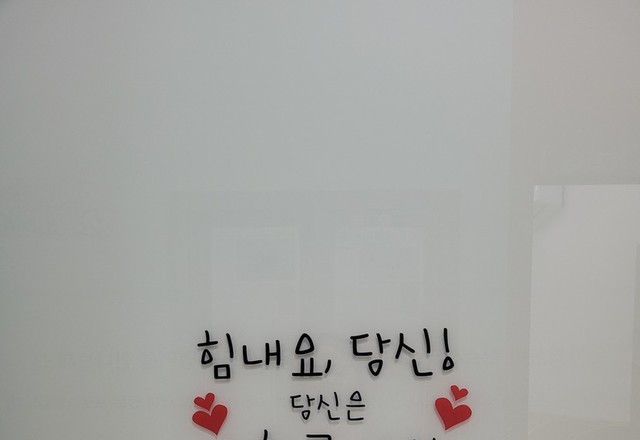 힘내요, 당신!
당신은